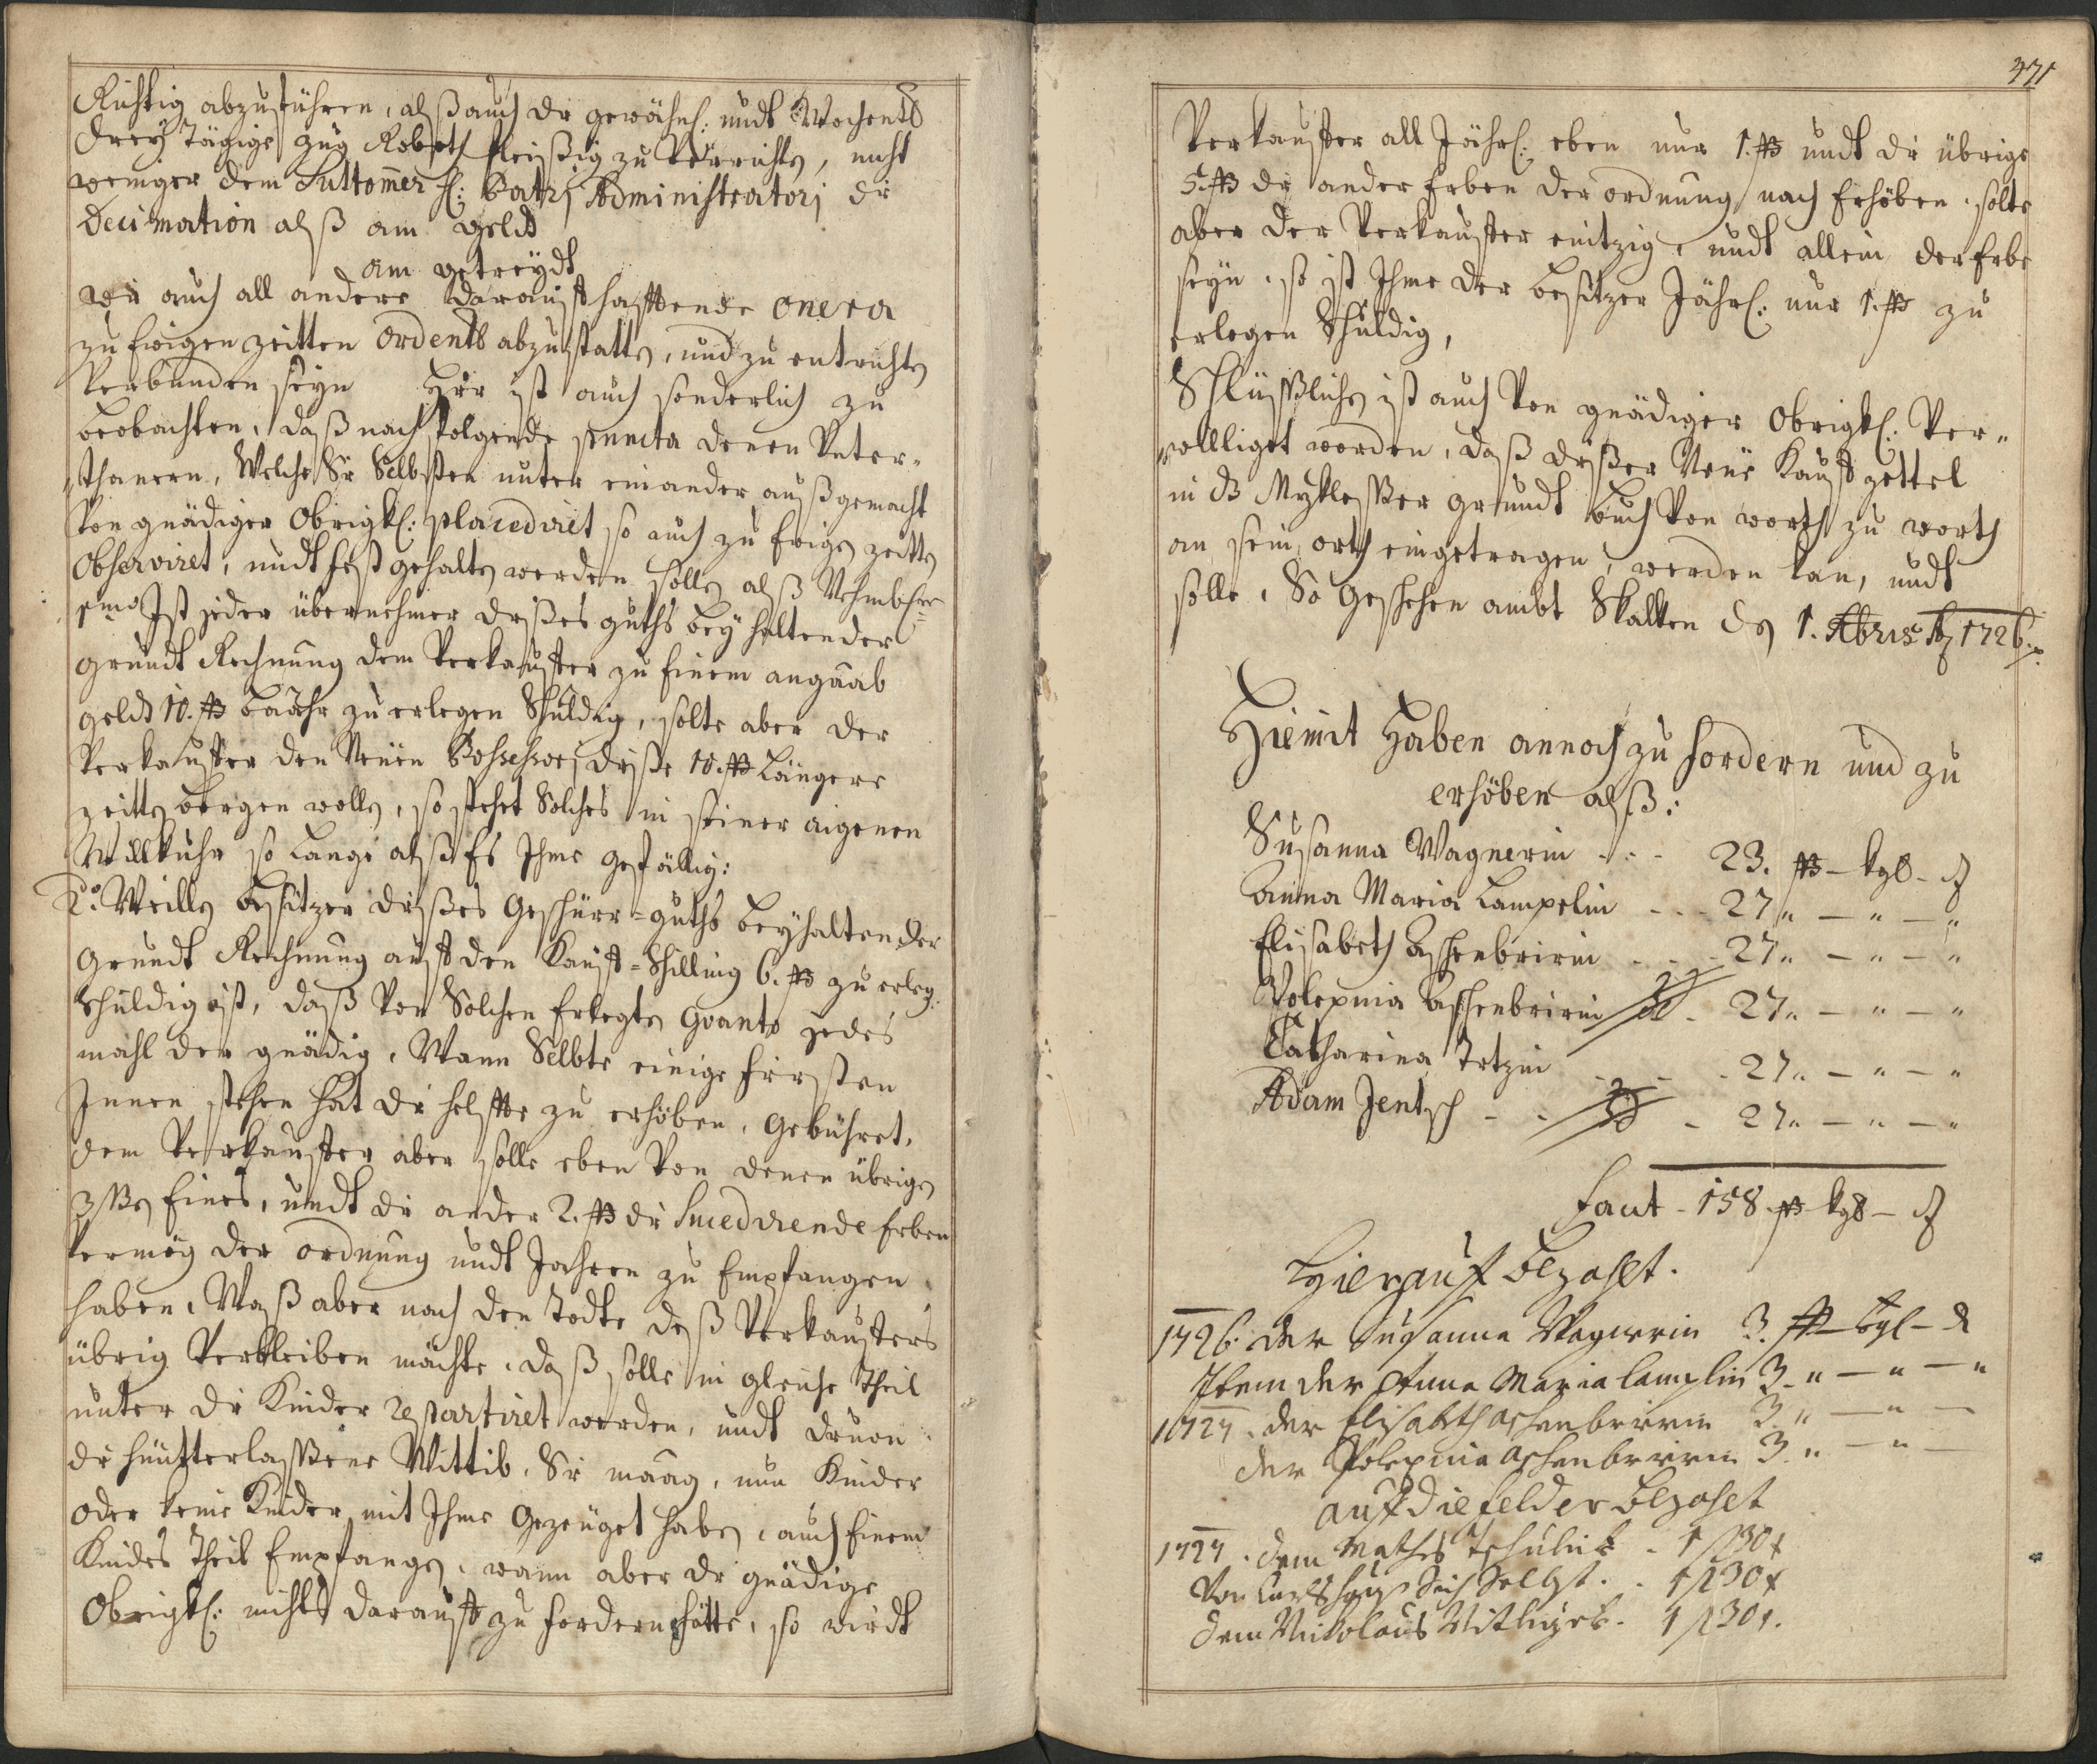 Richtig abzuführen, alß auch die gewöhnl: undt Wochentl
Drey Tägige Zug Roboth fleißig zu Verrichten, nicht
weniger dem Suttomer H: Patri Administratori die
Decimation alß am geldt
am getreydt
wie auch all andere darauff hafftende onera
zu Ewigen Zeitten ordentl abzustatten, und zu entrichten
Verbunden seyn Hier ist auch sonderlich zu
beobachten, daß nachfolgende puncta denen Unter-
thanern, Welche Sie Selbsten unter einander außgemacht
Von gnädiger Obrigkl: placediret so auch zu Ewigen Zeitten
Observiret, undt fest gehalten werden sollen alß Nehmbl:
1mo Ist jeder übernehmer dißes guths bey haltender
grundt Rechnung dem Verkauffer zu Einem angaab
geldt 10. ß baahr zu erlegen Schuldig, solte aber der
Verkauffer den Neüen Possessori diße 10. ß Längere
Zeitten borgen wollen, so stehet Solches in seiner aigenen
Willkuhr so Lange alß Es Ihme gefällig:
2do Weillen besitzer dißes Geschürr-guths beyhaltender
Grundt Rechnung auff den Kauff-Schilling 6. ß zu erleg:
Schuldig ist, daß Von Solchen Erlegten Quanto jedes
mahl der gnädig, Wann Selbte einige Fristen
Innen stehen hat die helffte zu erhöben, Gebühret,
dem Verkauffer aber solle eben Von denen übrigen
3 ßn Eines, undt die ander 2. ß die Succedirende Erben
Vermög der ordnung undt Jahren zu Empfangen
haben, Waß aber nach den Todte deß Verkauffers
übrig Verbleiben möchte, daß solle in gleiche Theil
unter die Kinder repartiret werden, undt davon
die hünterlassene Wittib, Sie maag, nun Kinder
oder keine Kinder mit Ihme Gezeüget haben, auch Einem
Kindes Theil Empfangen, wann aber die gnädige
Obrigkl: nichts darauff zu fordern hätte, so wirdt
471
Verkauffer all Jährl: eben nur 1. ß undt die übrige
5. ß die ander Erben der ordnung nach Erhöben, solte
aber der Verkauffer eintzig undt allein der Erbe
seyn, so ist Ihme der besitzer Jährl: nur 1. ß zu
erlegen Schuldig,
Schlüßlichen ist auch Von gnädiger Obrigkl: Ver-
willliget worden, daß dißer Neüe Kauff zettel
in das Grundt buch Von worth zu worth
an sein orth eingetragen, werden kan, undt
solle. So Geschehen ambt Skalken den 1. 1726.
Hiemit Haben annoch zu fordern und zu
erhöben alß:
Susanna Wagnerin - - - 23. ß – kgl – ₰
Anna Maria Lampelin - - - 27 „ – „ – „
Elisabeth Aschenbririn - - - 27 „ – „ – „
Polexnia Aschenbririn - 27 „ – „ – „
Catharina Tetzin - - - 27 „ – „ – „
Adam Jentsch - - - 27 „ – „ – „
Facit - 158 ß kgl – ₰
Hierauf Bezahlt.
1726. der Susanna Wagnerin 3. ß – kgl – ₰
Item der Anna Maria Lamplin 3 „ – „ – „
1727. der Elisabeth aschenbririn 3 „ – „ –
der Polexnia Aschenbririn 3 „ – „ –
auf die felder Bezahlt
1727. dem Mathes - 1 f 30 x
Von Sich Selbst. - 1 f 30 x
dem Nickolaus - 1 f 30 x.